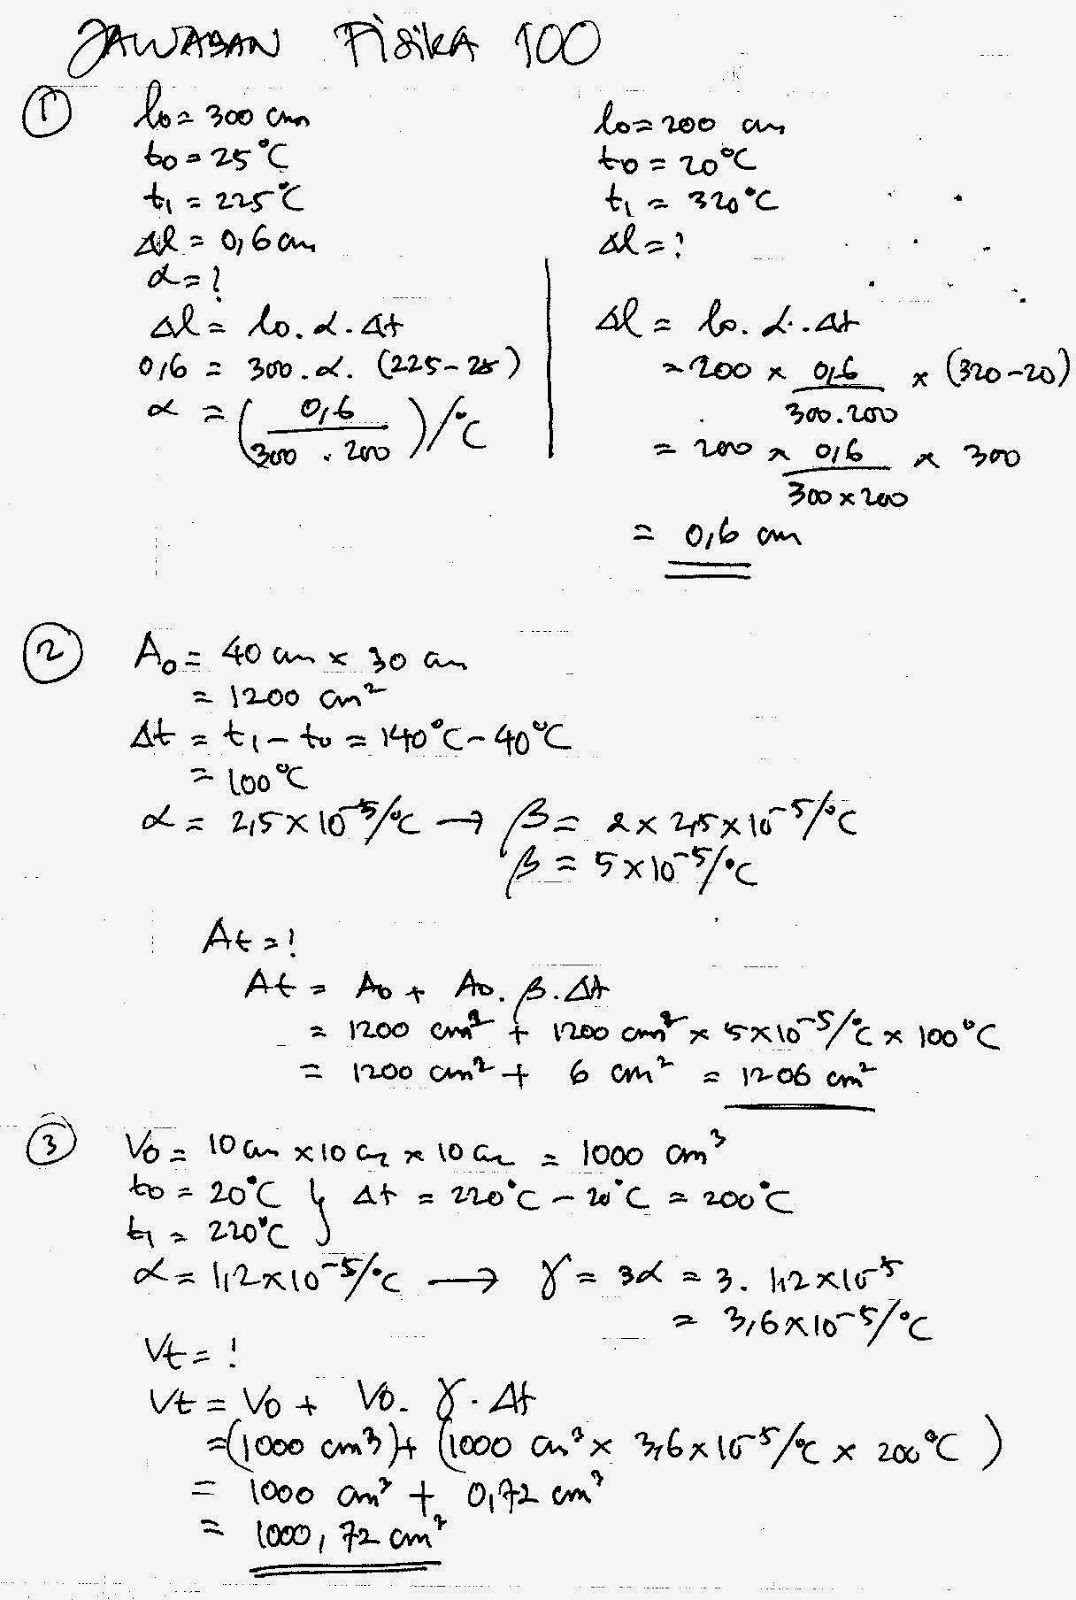 JAWABAN FISIKA 100
① l₀ = 300 cm
t₀ = 25°C
t₁ = 225°C
Δl = 0,6 cm
α = ?
Δl = l₀ . α . Δt
0,6 = 300 . α . (225 - 25)
α = (0,6 / 300 . 200) /°C
l₀ = 200 cm
t₀ = 20°C
t₁ = 320°C
Δl = ?
Δl = l₀ . α . Δt
= 200 × 0,6 / 300.200 × (320-20)
= 200 × 0,6 / 300×200 × 300
= 0,6 cm
② A₀ = 40 cm × 30 cm
= 1200 cm²
Δt = t₁ - t₀ = 140°C - 40°C
= 100°C
α = 2,5×10⁻⁵/°C → β = 2×2,5×10⁻⁵/°C
β = 5×10⁻⁵/°C
At = ?
At = A₀ + A₀ . β . Δt
= 1200 cm² + 1200 cm² × 5×10⁻⁵/°C × 100°C
= 1200 cm² + 6 cm² = 1206 cm²
③ V₀ = 10 cm × 10 cm × 10 cm = 1000 cm³
t₀ = 20°C } Δt = 220°C - 20°C = 200°C
t₁ = 220°C
α = 1,2×10⁻⁵/°C → γ = 3α = 3 . 1,2×10⁻⁵
= 3,6×10⁻⁵/°C
Vt = ?
Vt = V₀ + V₀ . γ . Δt
= (1000 cm³) + (1000 cm³ × 3,6×10⁻⁵/°C × 200°C)
= 1000 cm³ + 0,72 cm³
= 1000,72 cm³